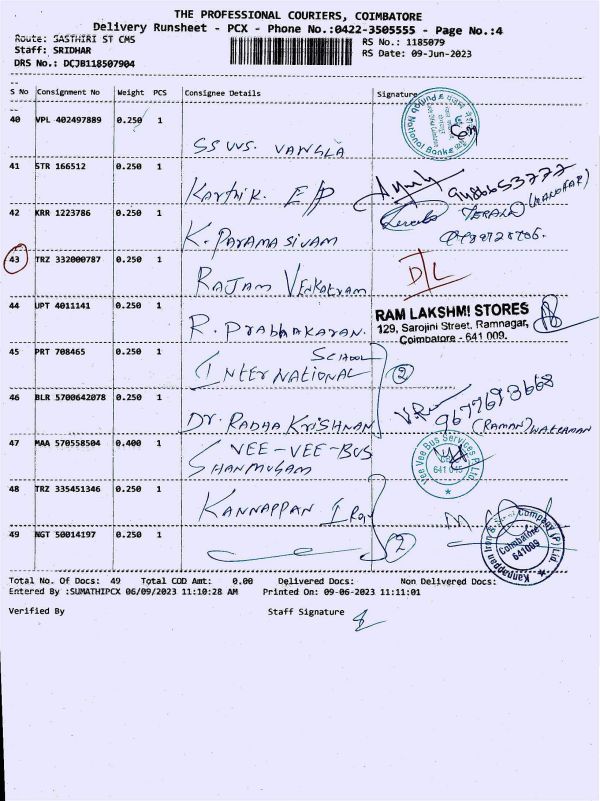 THE PROFESSIONAL COURIERS, COIMBATORE
Delivery Runsheet - PCX - Phone No.:0422-3505555 - Page No.:4
Route: SASTHIRI ST CMS
RS No.: 1185079
Staff: SRIDHAR
RS Date: 09-Jun-2023
DRS No.: DCJB118507904
S No Consignment No Weight PCS Consignee Details Signature
40 VPL 402497889 0.250 1
Punjab National Bank
SS VVS. VANGLA
41 STR 166512 0.250 1
Karthik. E/P
9486653777
42 KRR 1223786 0.250 1
K. Paramasivam
43 TRZ 332000787 0.250 1
Rajam Venkatram D/L
44 UPT 4011141 0.250 1
R. Prabhakaran.
RAM LAKSHMI STORES
129, Sarojini Street, Ramnagar,
Coimbatore - 641 009.
45 PRT 708465 0.250 1
International School 2
46 BLR 5700642078 0.250 1
Dr. Radha Krishnan
9677693668
(RAMAN)
47 MAA 570558504 0.400 1
VEE-VEE-BUS
Shanmugam
Vee Vee Bus Services P Ltd
48 TRZ 335451346 0.250 1
Kannappan Iron
49 NGT 50014197 0.250 1
2
Kannappan Iron & Steel Company (P) Ltd.
Coimbatore
641009
Total No. Of Docs: 49 Total COD Amt: 0.00 Delivered Docs: Non Delivered Docs:
Entered By :SUMATHIPCX 06/09/2023 11:10:28 AM Printed On: 09-06-2023 11:11:01
Verified By Staff Signature